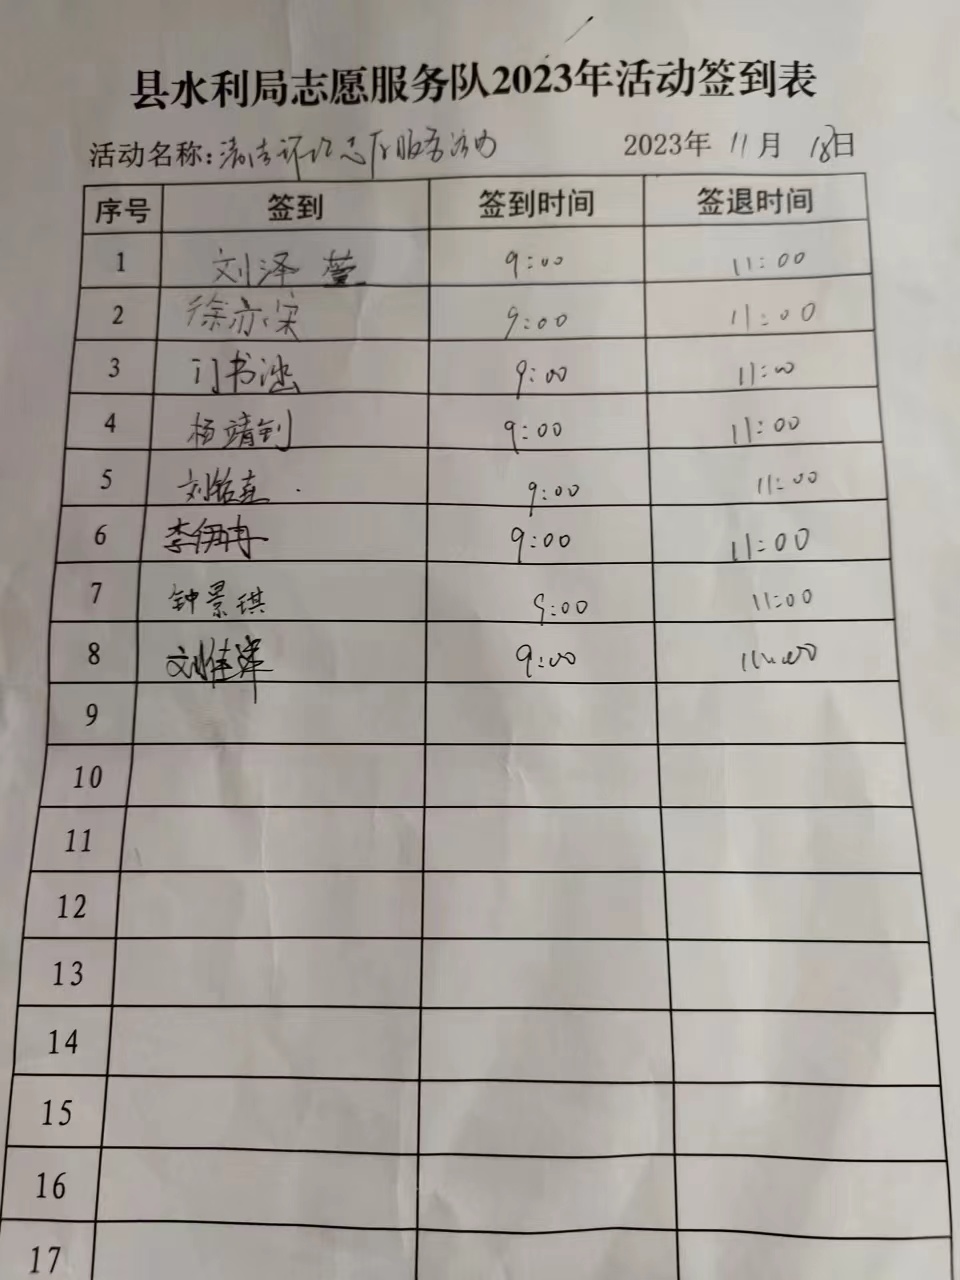 县水利局志愿服务队2023年活动签到表
活动名称:清洁环境志愿服务活动 2023年 11月 18日
序号 签到 签到时间 签退时间
1 刘泽萱 9:00 11:00
2 徐亦宋 9:00 11:00
3 门书涵 9:00 11:00
4 杨靖钊 9:00 11:00
5 刘铭 9:00 11:00
6 李伊冉 9:00 11:00
7 钟景琪 9:00 11:00
8 刘佳 9:00 11:00
9
10
11
12
13
14
15
16
17